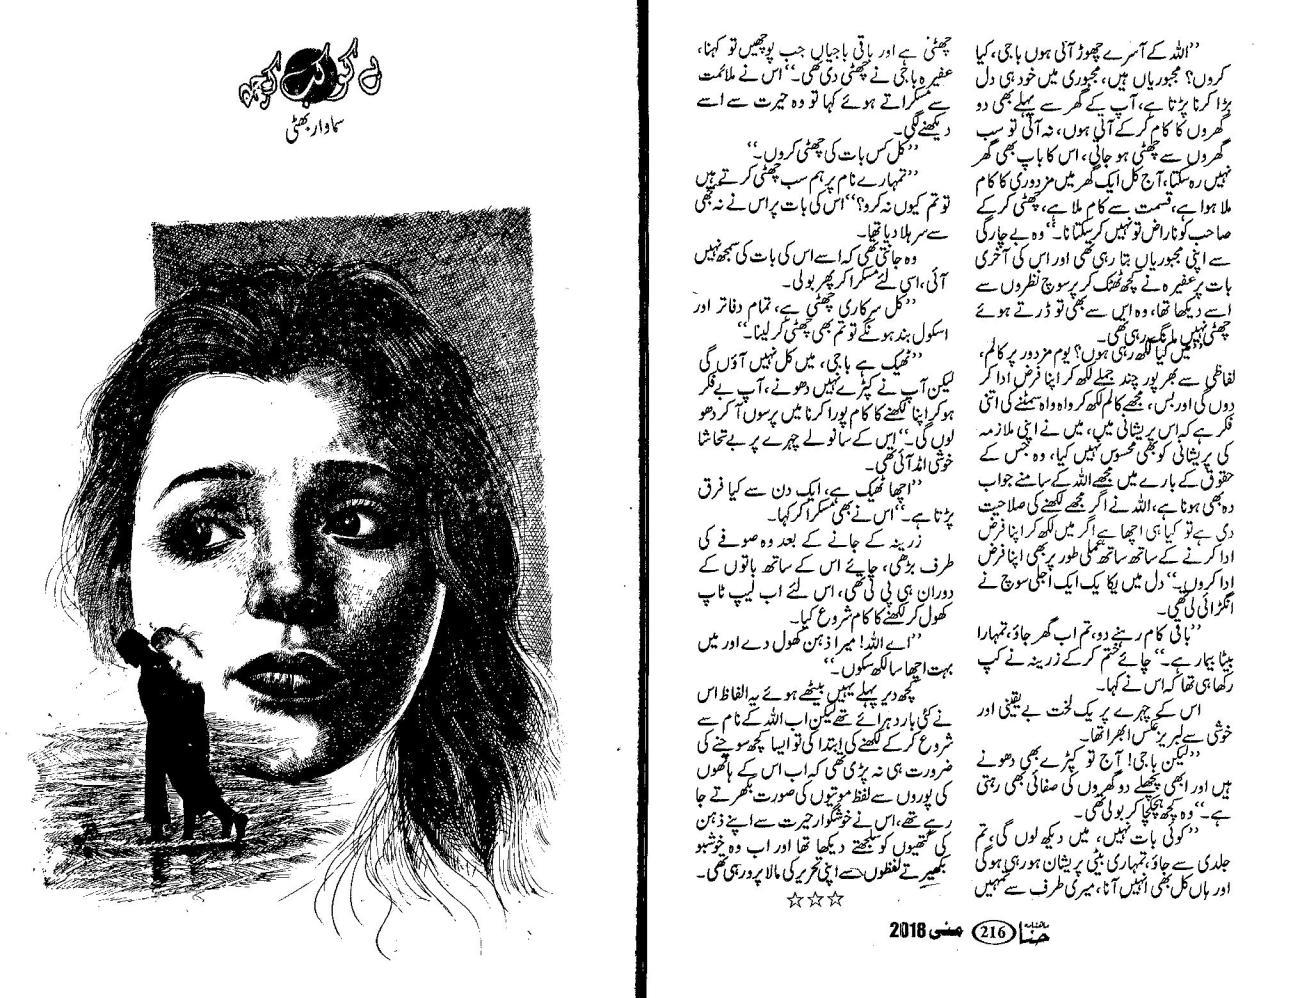 ’’اللہ کے آسرے چھوڑ آئی ہوں باجی، کیا
کروں؟ مجبوریاں ہیں، مجبوری میں خود ہی دل
بڑا کرنا پڑتا ہے، آپ کے گھر سے پہلے بھی دو
گھروں کا کام کر کے آئی ہوں، نہ آتی تو سب
گھروں سے چھٹی ہو جاتی، اس کا باپ بھی گھر
نہیں رہ سکتا، آج کل ایک گھر میں مزدوری کا کام
ملا ہوا ہے، قسمت سے کام ملا ہے، چھٹی کر کے
صاحب کو ناراض تو نہیں کر سکتا نا۔‘‘ وہ بے چارگی
سے اپنی مجبوریاں بتا رہی تھی اور اس کی آخری
بات پر عفیرہ نے کچھ ٹھٹک کر پرسوچ نظروں سے
اسے دیکھا تھا، وہ اس سے بھی تو ڈرتے ہوئے
چھٹی نہیں مانگ رہی تھی۔
’’میں کیا لکھ رہی ہوں؟ یوم مزدور پر کالم،
لفاظی سے بھرپور چند جملے لکھ کر اپنا فرض ادا کر
دوں گی اور بس، مجھے کالم لکھ کر واہ واہ سمیٹنے کی اتنی
فکر ہے کہ اس پریشانی میں، میں نے اپنی ملازمہ
کی پریشانی کو بھی محسوس نہیں کیا، وہ جس کے
حقوق کے بارے میں مجھے اللہ کے سامنے جواب
دہ بھی ہونا ہے، اللہ نے اگر مجھے لکھنے کی صلاحیت
دی ہے تو کیا ہی اچھا ہے اگر میں لکھ کر اپنا فرض
ادا کرنے کے ساتھ ساتھ عملی طور پر بھی اپنا فرض
ادا کروں۔‘‘ دل میں یکا یک ایک اجلی سوچ نے
انگڑائی لی تھی۔
’’باقی کام رہنے دو، تم اب گھر جاؤ، تمہارا
بیٹا بیمار ہے۔‘‘ چائے ختم کر کے زرینہ نے کپ
رکھا ہی تھا کہ اس نے کہا۔
اس کے چہرے پر یک لخت بے یقینی اور
خوشی سے لبریز عکس ابھرا تھا۔
’’لیکن باجی! آج تو کپڑے بھی دھونے
ہیں اور ابھی پچھلے دو گھروں کی صفائی بھی رہتی
ہے۔‘‘ وہ کچھ ہچکچا کر بولی تھی۔
’’کوئی بات نہیں، میں دیکھ لوں گی، تم
جلدی سے جاؤ، تمہاری بیٹی پریشان ہو رہی ہو گی
اور ہاں کل بھی نہیں آنا، میری طرف سے تمہیں
چھٹی ہے اور باقی باجیاں جب پوچھیں تو کہنا،
عفیرہ باجی نے چھٹی دی تھی۔‘‘ اس نے ملائمت
سے مسکراتے ہوئے کہا تو وہ حیرت سے اسے
دیکھنے لگی۔
’’کل کس بات کی چھٹی کروں۔‘‘
’’تمہارے نام پر ہم سب چھٹی کرتے ہیں
تو تم کیوں نہ کرو؟‘‘ اس کی بات پر اس نے نہ بھی
سے سر ہلا دیا تھا۔
وہ جانتی تھی کہ اسے اس کی بات کی سمجھ نہیں
آئی، اسی لئے مسکرا کر پھر بولی۔
’’کل سرکاری چھٹی ہے، تمام دفاتر اور
اسکول بند ہونگے تو تم بھی چھٹی کر لینا۔‘‘
’’ٹھیک ہے باجی، میں کل نہیں آؤں گی
لیکن آپ نے کپڑے نہیں دھونے، آپ بے فکر
ہو کر اپنا لکھنے کا کام پورا کرنا میں پرسوں آ کر دھو
لوں گی۔‘‘ اس کے سانولے چہرے پر بے تحاشا
خوشی امڈ آئی تھی۔
’’اچھا ٹھیک ہے، ایک دن سے کیا فرق
پڑتا ہے۔‘‘ اس نے بھی مسکرا کر کہا۔
زرینہ کے جانے کے بعد وہ صوفے کی
طرف بڑھی، چائے اس کے ساتھ باتوں کے
دوران ہی پی لی تھی، اس لئے اب لیپ ٹاپ
کھول کر لکھنے کا کام شروع کیا۔
’’اے اللہ! میرا ذہن کھول دے اور میں
بہت اچھا سا لکھ سکوں۔‘‘
کچھ دیر پہلے یہیں بیٹھے ہوئے یہ الفاظ اس
نے کئی بار دہرائے تھے لیکن اب اللہ کے نام سے
شروع کر کے لکھنے کی ابتدا کی تو ایسا کچھ سوچنے کی
ضرورت ہی نہ پڑی تھی کہ اب اس کے ہاتھوں
کی پوروں سے لفظ موتیوں کی صورت بکھرتے جا
رہے تھے، اس نے خوشگوار حیرت سے اپنے ذہن
کی گتھیوں کو سلجھتے دیکھا تھا اور اب وہ خوشبو
بکھیرتے لفظوں سے اپنی تحریر کی مالا پرو رہی تھی۔
☆☆☆
ماہنامہ حنا 216 مئی 2018
سماوار بھٹی